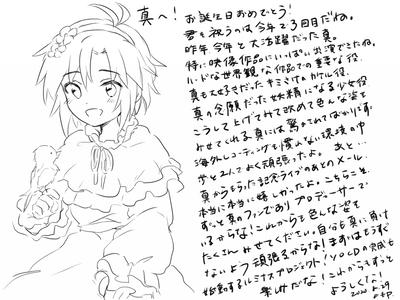 真へ！
お誕生日おめでとう！
君を祝うのは今年で3回目だね。
昨年今年と大活躍だった真。
特に映像作品にいっぱい出演できたね。
ハードな世界観な作品での重要な役、
真も大好きだったキミはのかけル役、
真の念願だった妖精になる少女役
こうして上げてみて改めて色んな姿を
みせてくれる真には驚かされてばかりです。
海外レコーディングも慣れない環境の中
歩と2人でよく頑張ったよ。あと…
真からもらった記念ライブのあとのメール
本当に本当に嬉しかったよ。こちらこそ
ずっと真のファンでありプロデューサーで
いるからな！これからも色んな姿を
たくさんみせてください。自分も真に負け
ないよう頑張るからな！まずはもうすぐ
始動するルミナスプロジェクト！
楽しみだな！これからもずっと
よろしくな！
2020 8.29